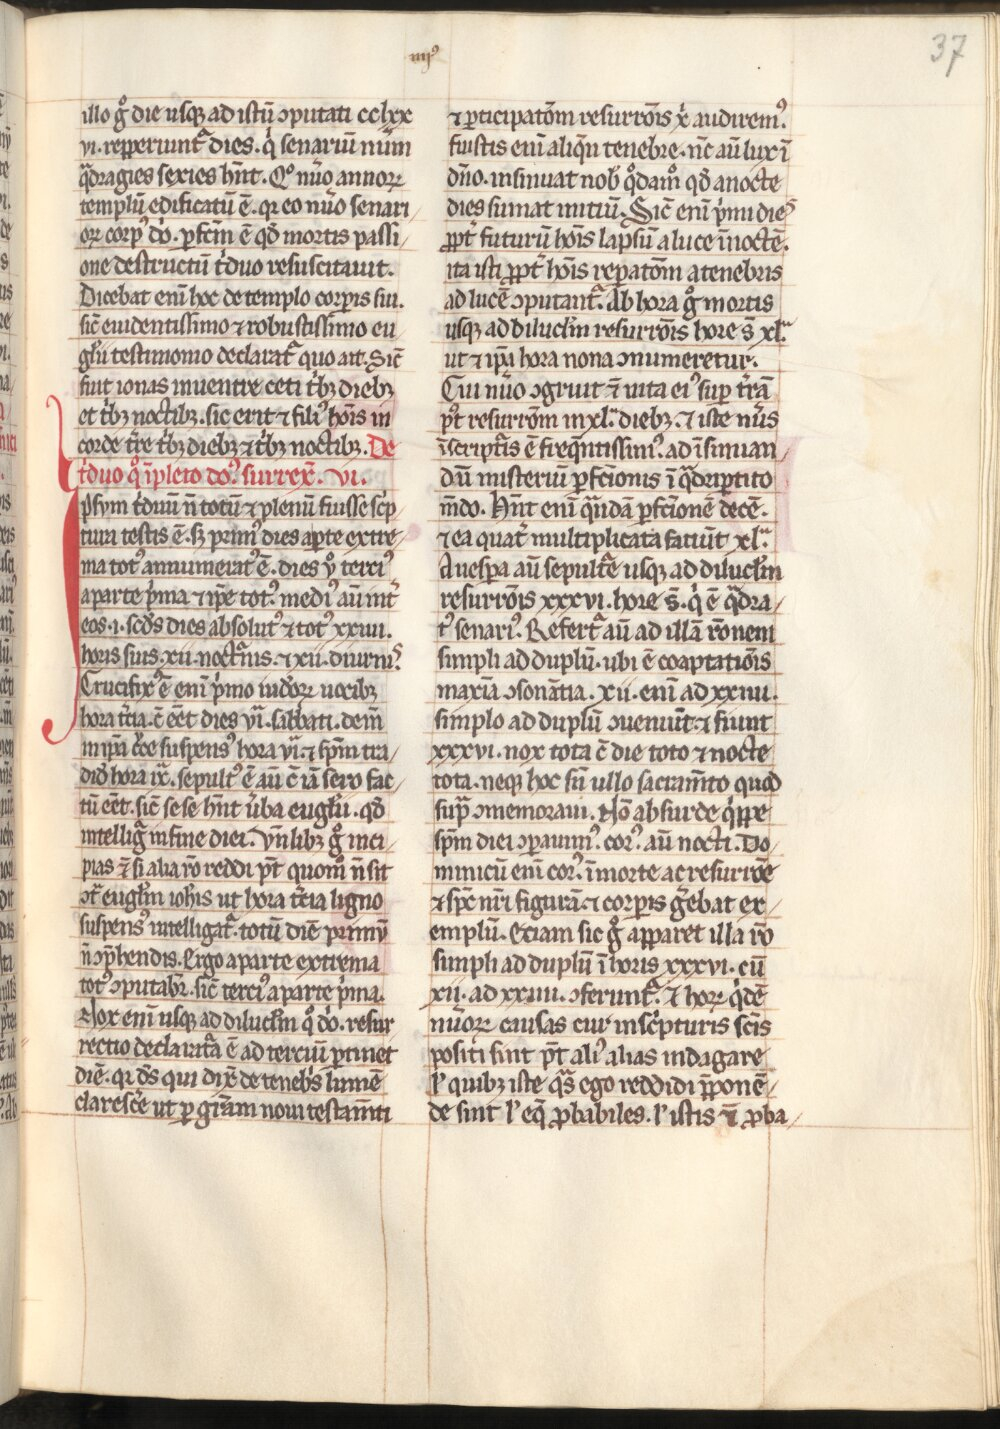 37
iiij⁹
illo g̊ die usq; ad istū ɔputati cclxx
vi. repperiunt᷑ dies. q̇ senariū num̄
q̃dragies sexies hn̄t. Q⁰ nūo annoꝝ
templū edificatū ē. qꝛ eo nūo senari
oꝝ corp⁹ dō. ꝑfcm̄ ē qd̄ mortis passi/
one destructū t̓duo resuscitauit.
Dicebat enī hoc de templo corꝑis sui.
sic̄ euidentissimo ⁊ robustissimo eu
glii testimonio declarat᷑ quo ait. Sic̄
fuit ionas in uentre ceti t̓bꝫ diebꝫ
et t̓bꝫ noctibꝫ. sic erit ⁊ fili⁹ hoīs in
corde t̄re t̓bꝫ diebꝫ ⁊ t̓bꝫ noctibꝫ. De
t̓duo q̊ īpleto do⁹ surrex̄. vi.
Ipsym t̓duū n̄ totū ⁊ plenū fuisse sc̓p
tura testis ē. sꝫ prim⁹ dies aꝑte extre/
ma tot⁹ annumerat⁹ ē. dies ů terci⁹
a parte p̓ma ⁊ ip̄e tot⁹. medi⁹ aū int̓
eos .i. scd̄s dies absolut⁹ ⁊ tot⁹ xxiiii.
horis suis. xii. noct᷑nis. ⁊ xii. diurni⁹
Crucifix⁹ ē enī p̓mo iud̓oꝝ uocibꝫ
hora t̓cia. c̄ eēt dies vi᷑. sabbati. dem̄
in ip̄a c̓ce suspens⁹ hora vi᷑. ⁊ sp̄m tra/
did̓ hora ix᷑. sepult⁹ ē aū c̄ iā sero fac/
tū eēt. sic̄ sese hn̄t ůba euglii. qd̄
intelligit᷑ in fine diei. Vn̄libꝫ g̊ inci
pias ⁊̄ si alia rō reddi pt̄ quom̊ n̄ sit
ɔt᷑ euglm̄ ioħis ut hora t̓cia ligno
suspens⁹ intelligat᷑. totū diē primū
n̄ ɔp̄hendis. Ergo a parte extrema
tot⁹ ɔputabr̃. sic̄ terci⁹ a parte p̓ma.
Nox enī usq; ad diluclm̄ q̊ dō. resur
rectio declarata ē ad terciū ꝑtinet
diē. qꝛ ds̄ qui dix̄ de tenebs̓ lumē
claresc̄e ut ꝑ gr̄am noui testam̄ti
⁊ ꝑticipatōm resurrōis xp̄i audirem⁹.
fuistis enī aliqn̄ tenebre. nc̄ aū lux ī
dn̄o. insinuat nob̄ q̊dam̊ qd̄ a nocte
dies sumat initiū. Sic̄ enī p̓mi die⁹
ꝓpt̓ futurū hoīs lapsū a luce ī noctē.
ita isti ꝓpt̓ hoīs reꝑatōm a tenebris
ad lucē ɔputant᷑. Ab hora g̊ mortis
usq; ad diluclm̄ resurrōis hore s̄ xl᷑
ut ⁊ ip̄a hora nona ɔnumeretur.
Cui nūo ɔgruit ⁊̄ uita ei⁹ suꝑ t̓rā
pt̓ resurrōm in xl᷑. diebꝫ. ⁊ iste nūs
ī scripturis ē freqn̄tissim⁹. ad īsinuan/
dū misteriū ꝑfcīonis ī q̃driꝑtito
mūdo. Hn̄t enī q̄ndā ꝑfcīonē decē.
⁊ ea quat̓ multiplicata faciūt xl᷑.
A uespa aū sepult᷑e usq; ad diluclm̄
resurrōis xxxvi. hore s̄. q̇ ē q̃dra/
t⁹ senari⁹. Refert᷑ aū ad illā rōnem
simpli ad duplū. ubi ē coaptatiōis
maxīa ɔsonātia. xii. enī ad xxiiii.
simplo ad duplū ɔueniūt. ⁊ fiunt
xxxvi. nox tota c̄ die toto ⁊ nocte
tota. neq; hoc sn̄ ullo sacram̄to quod
sup̃ ɔmemoraui. Nō absurde q̇ppe
sp̄m diei ɔꝑauim⁹. cor⁹. aū nocti. Do/
minicū enī cor⁹. ī morte ac resurrōe
⁊ sp̄c nr̄i figurā. ⁊ corꝑis g̓ebat ex/
emplū. Etiam sic g̊ apparet illa rō
simpli ad duplū ī horis xxxvi. cū
xii. ad xxiiii. ɔferunt᷑. ⁊ hoꝝ q̇dē
nūoꝝ causas cur in sc̓pturis scīs
positi sint pt̄ ali⁹ alias indagare
ł quibꝫ iste q̃s ego reddidi p̄ponē/
de sint ł eq̄ ꝓbabiles. ł istis ⁊̄ ꝓba/